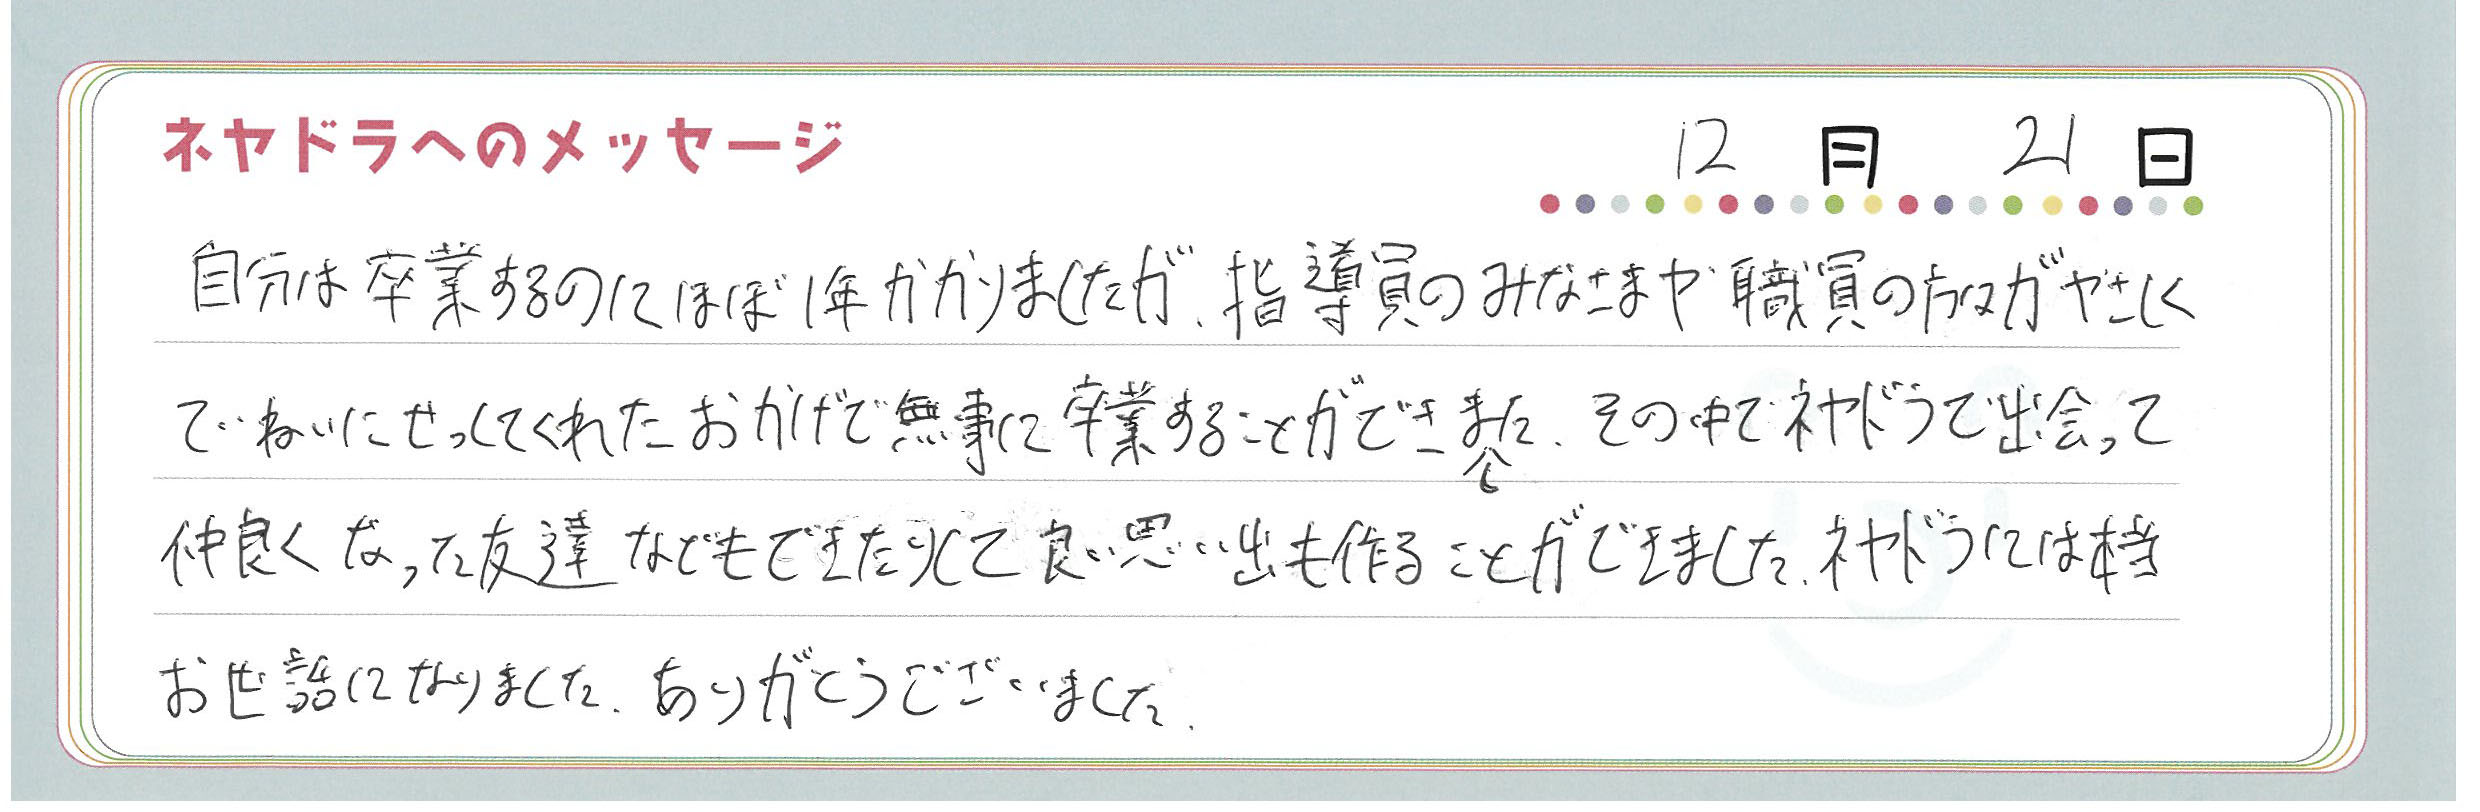 ネヤドラへのメッセージ
12月 21日
自分は卒業するのにほぼ1年かかりましたが、指導員のみなさまや職員の方々がやさしく
ていねいにせっしてくれたおかげで無事に卒業することができました、その中でネヤドラで出会って
仲良くなった友達などもできたりして良い思い出も作ることができました、ネヤドラには本当
お世話になりました、ありがとうございました、